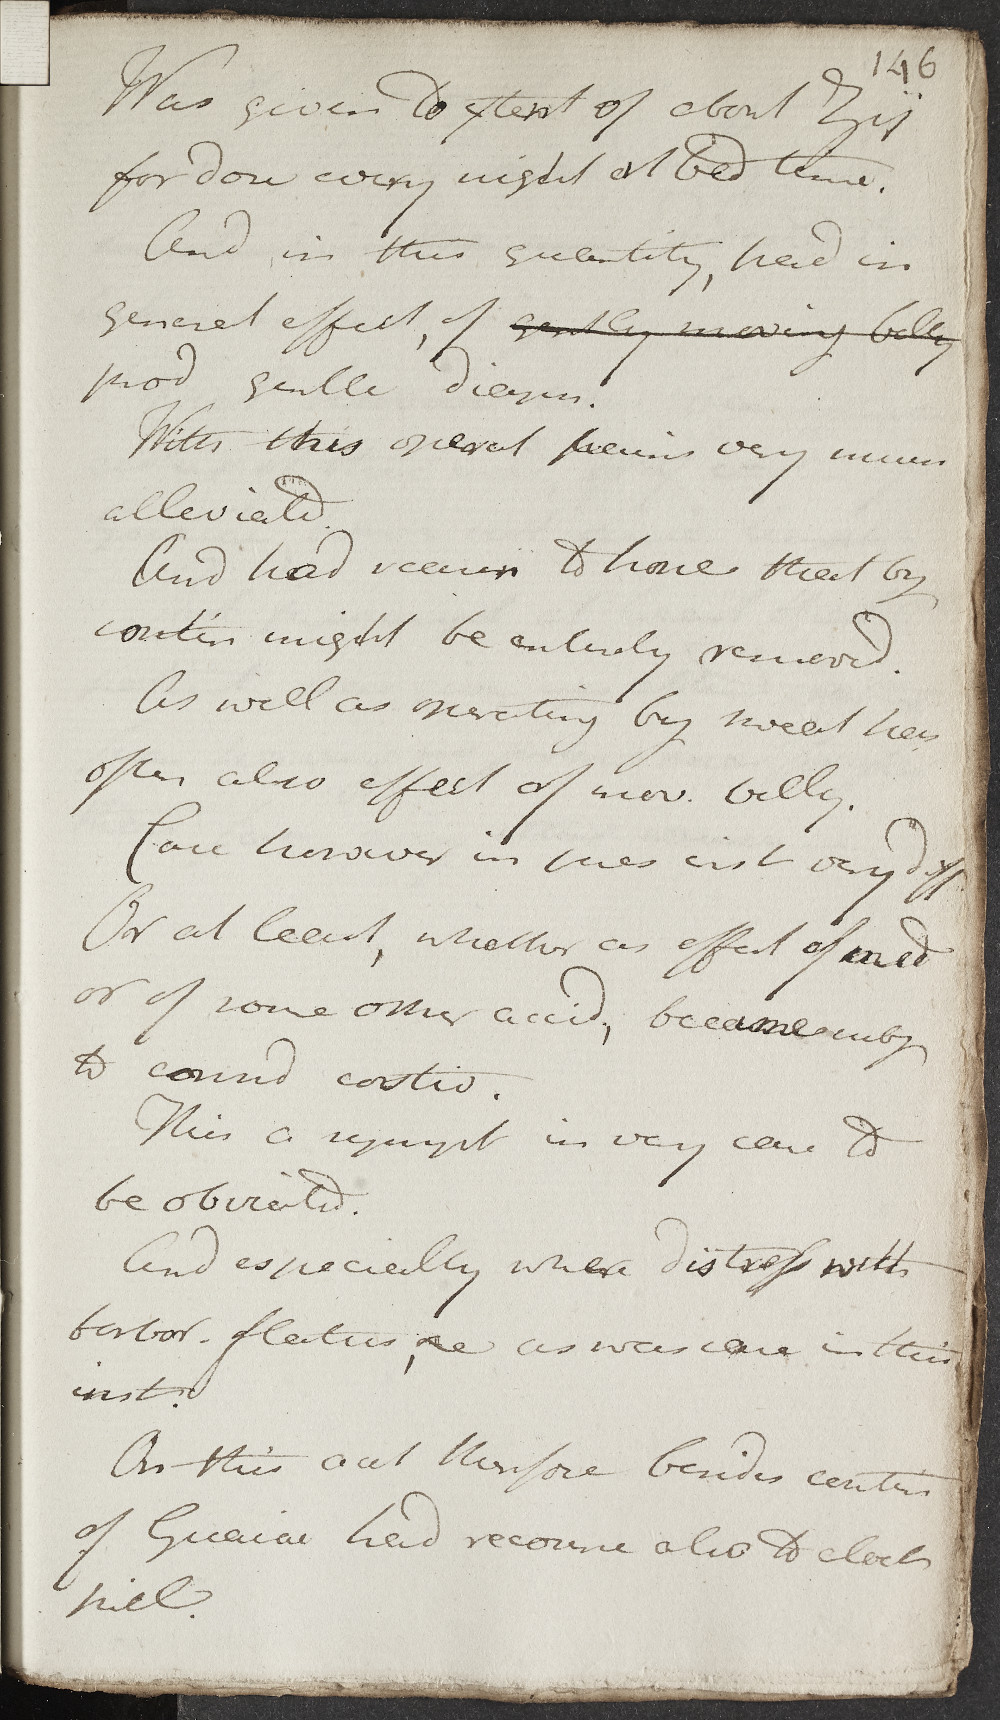 146
Was given to extent of about ʒij
for dose every night at bed time.
And in this quantity, had in
general effect, of gently moving belly
prod gentle diapn.
With this operat pains very much
alleviated.
And had reason to hope that by
contin might be entirely removed.
As well as operating by sweat has
often also effect of mov. belly.
Case however in pres inst very diff
Or at least, whether as effect of med
or of some other accid, became subj
to consid costiv.
This a sympt in every case to
be obviated.
And especially where distress with
borbor. flatus, &c as was case in this
inst.
On this acct therefore besides contin
of Guaiac had recourse also to aloet
pill.